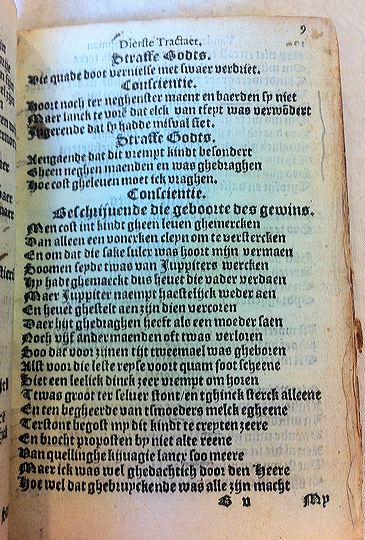 9
Dierste Tractaet.
Straffe Godts.
Die quade doot vernielse met swaer verdriet.
Conscientie.
Hoort noch ter neghenster maent en baerden sy niet
Maer lanck te vore dat elck van tfeyt was verwōdert
Jugerende dat sy hadde misval siet.
Straffe Godts.
Aengaende dat dit vrempt kindt besondert
Gheen neghen maenden en was ghedraghen
Hoe cost gheleuen moet ick vraghen.
Conscientie.
Beschrijuende die geboorte des gewins.
Men cost int kindt gheen leuen ghemercken
Dan alleen een voncxken cleyn om te verstercken
En om dat die sake sulcx was hoort mijn vermaen
Soomen seyde twas van Juppiters wercken
Hy hadt ghemaeckt dus heuet die vader verdaen
Maer Juppiter naempt haestelijck weder aen
En heuet ghestelt aen zijn dien vercoren
Daer hijt ghedraghen heeft als een moeder saen
Noch vijf ander maenden oft twas verloren
Soo dat voor zijnen tijt tweemael was gheboren
Alst voor die leste reyse voort quam soot scheene
Siet een leelick dinck zeer vrempt om horen
Twas groot ter seluer stont/en tghinck sterck alleene
En ten begheerde van tsmoeders melck egheene
Terstont begost my dit kindt te crepten zeere
En brocht proposten by niet alte reene
Van quellinghe kijuagie lancx soo meere
Maer ick was wel ghedachtich door den Heere
Hoe wel dat ghebruyckende was alle zijn macht
B v
My